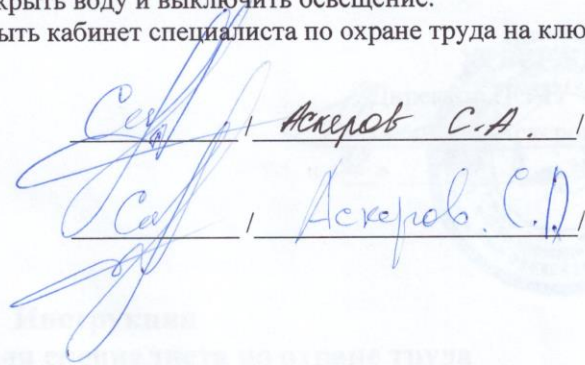 крыть воду и выключить освещение.
ыть кабинет специалиста по охране труда на клю
/ Аскеров С.А. /
/ Аскеров. С.А /
Инструкция
специалиста по охране труда